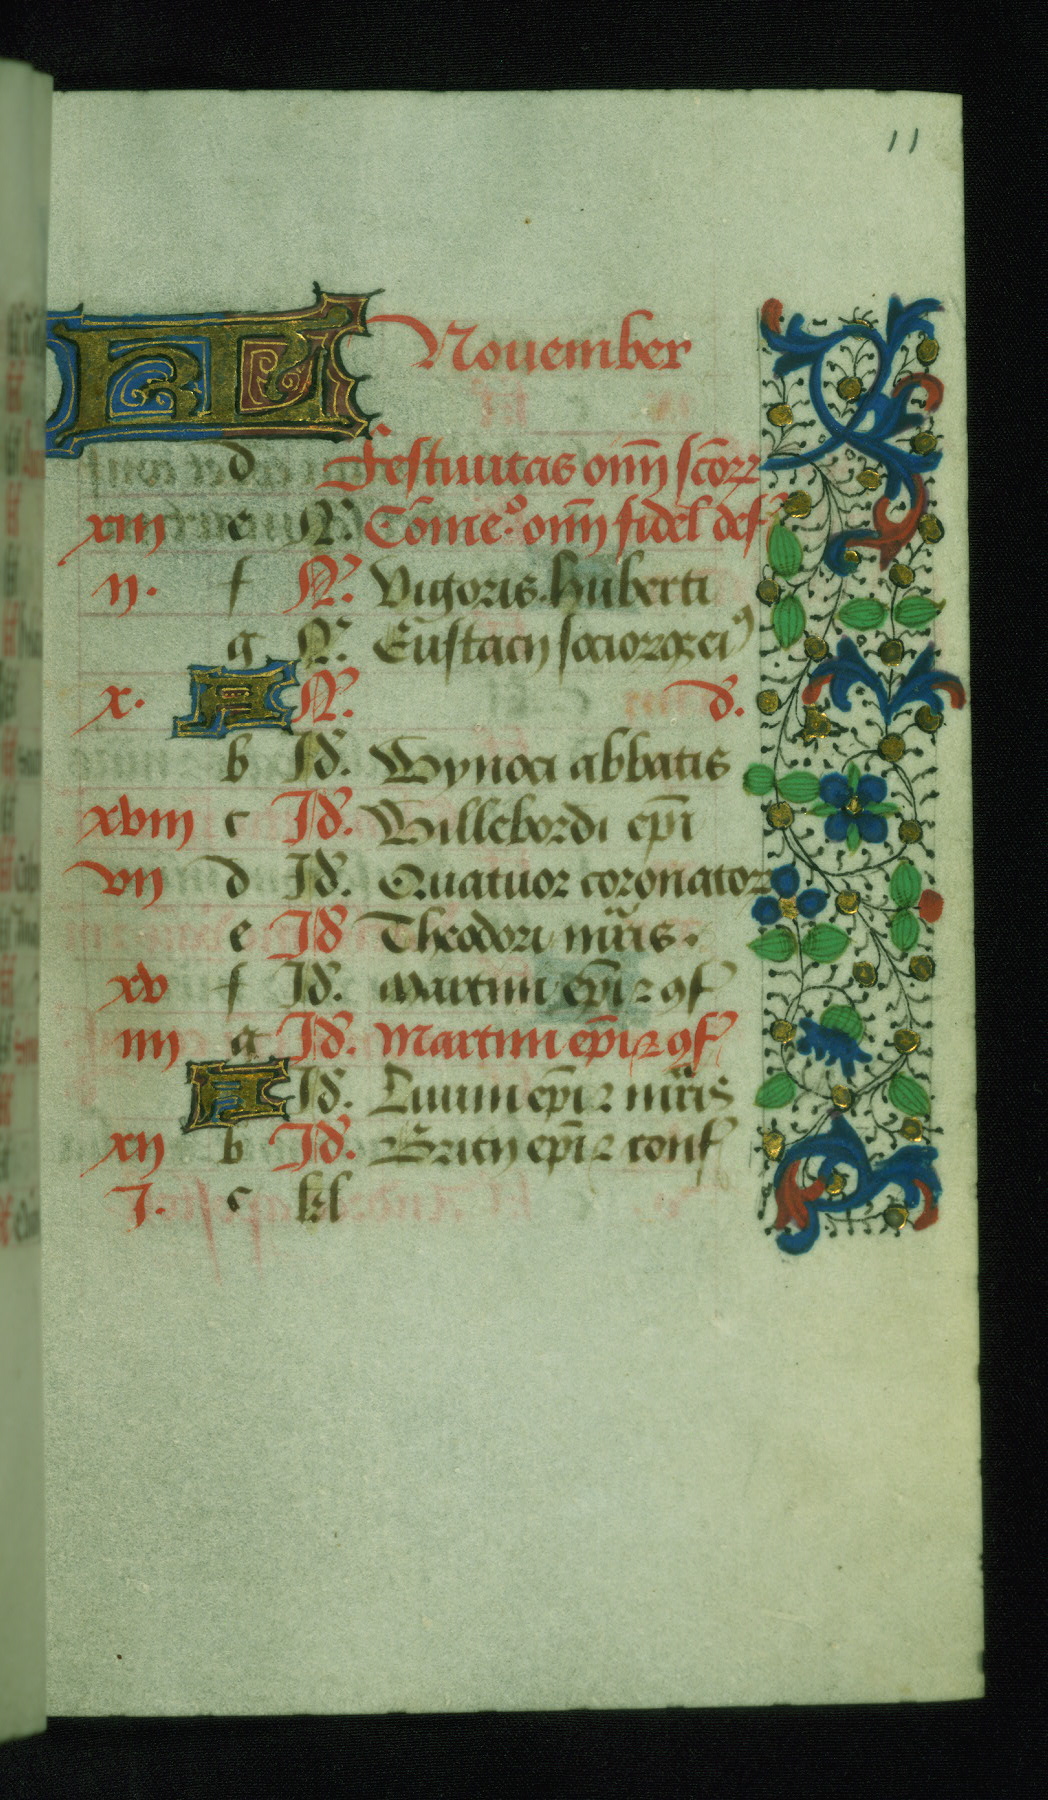 11
KL November
d Festiuitas om̄ sc̄orꝝ
xiii e N. Com̄e.⁰ om̄ fidel def
ii. f N. Vigoris. huberti
g N. Eustacij sociorꝝ ei⁹
x. A N. d.
b Id. Wynoci abbatis
xviii c Id. Willebordi ep̄i
vii d Id. Quatuor coronator
e Id Theodori mr̄is.
xv f Id. Martini ep̄i ⁊ ꝯf
iiii g Id. Martini ep̄i ⁊ ꝯf
A Id. Liuini ep̄i ⁊ mr̄is
xii b Id. Bricij ep̄i ⁊ conf
i. c kl